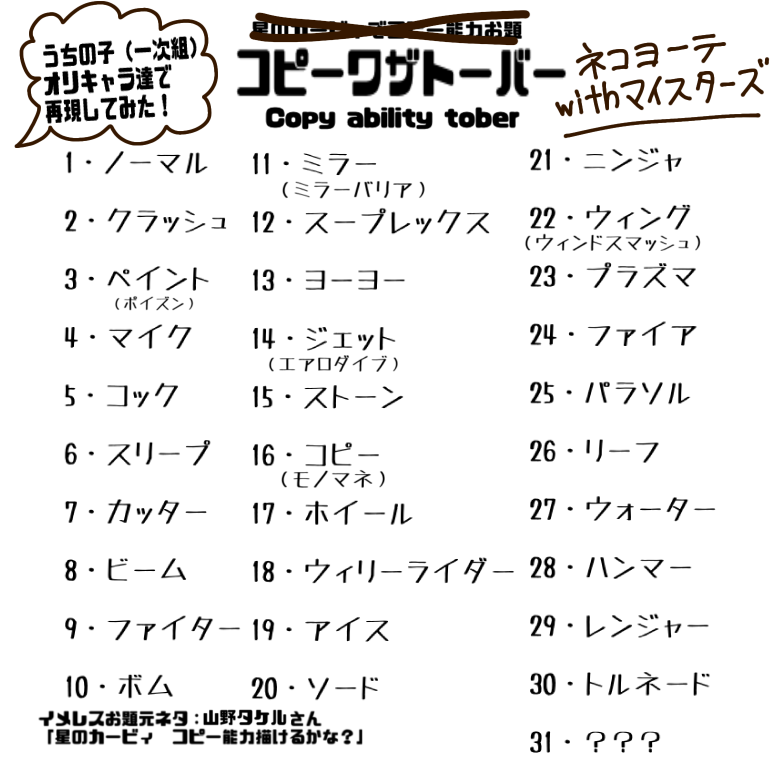 うちの子（一次組）
オリキャラ達で
再現してみた！
星のカービィでコピー能力お題
コピーワザトーバー
Copy ability tober
ネコヨーテ
withマイスターズ
1・ノーマル
2・クラッシュ
3・ペイント
（ポイズン）
4・マイク
5・コック
6・スリープ
7・カッター
8・ビーム
9・ファイター
10・ボム
11・ミラー
（ミラーバリア）
12・スープレックス
13・ヨーヨー
14・ジェット
（エアロダイブ）
15・ストーン
16・コピー
（モノマネ）
17・ホイール
18・ウィリーライダー
19・アイス
20・ソード
21・ニンジャ
22・ウィング
（ウィンドスマッシュ）
23・プラズマ
24・ファイア
25・パラソル
26・リーフ
27・ウォーター
28・ハンマー
29・レンジャー
30・トルネード
31・？？？
イメレスお題元ネタ：山野タケルさん
「星のカービィ　コピー能力描けるかな？」